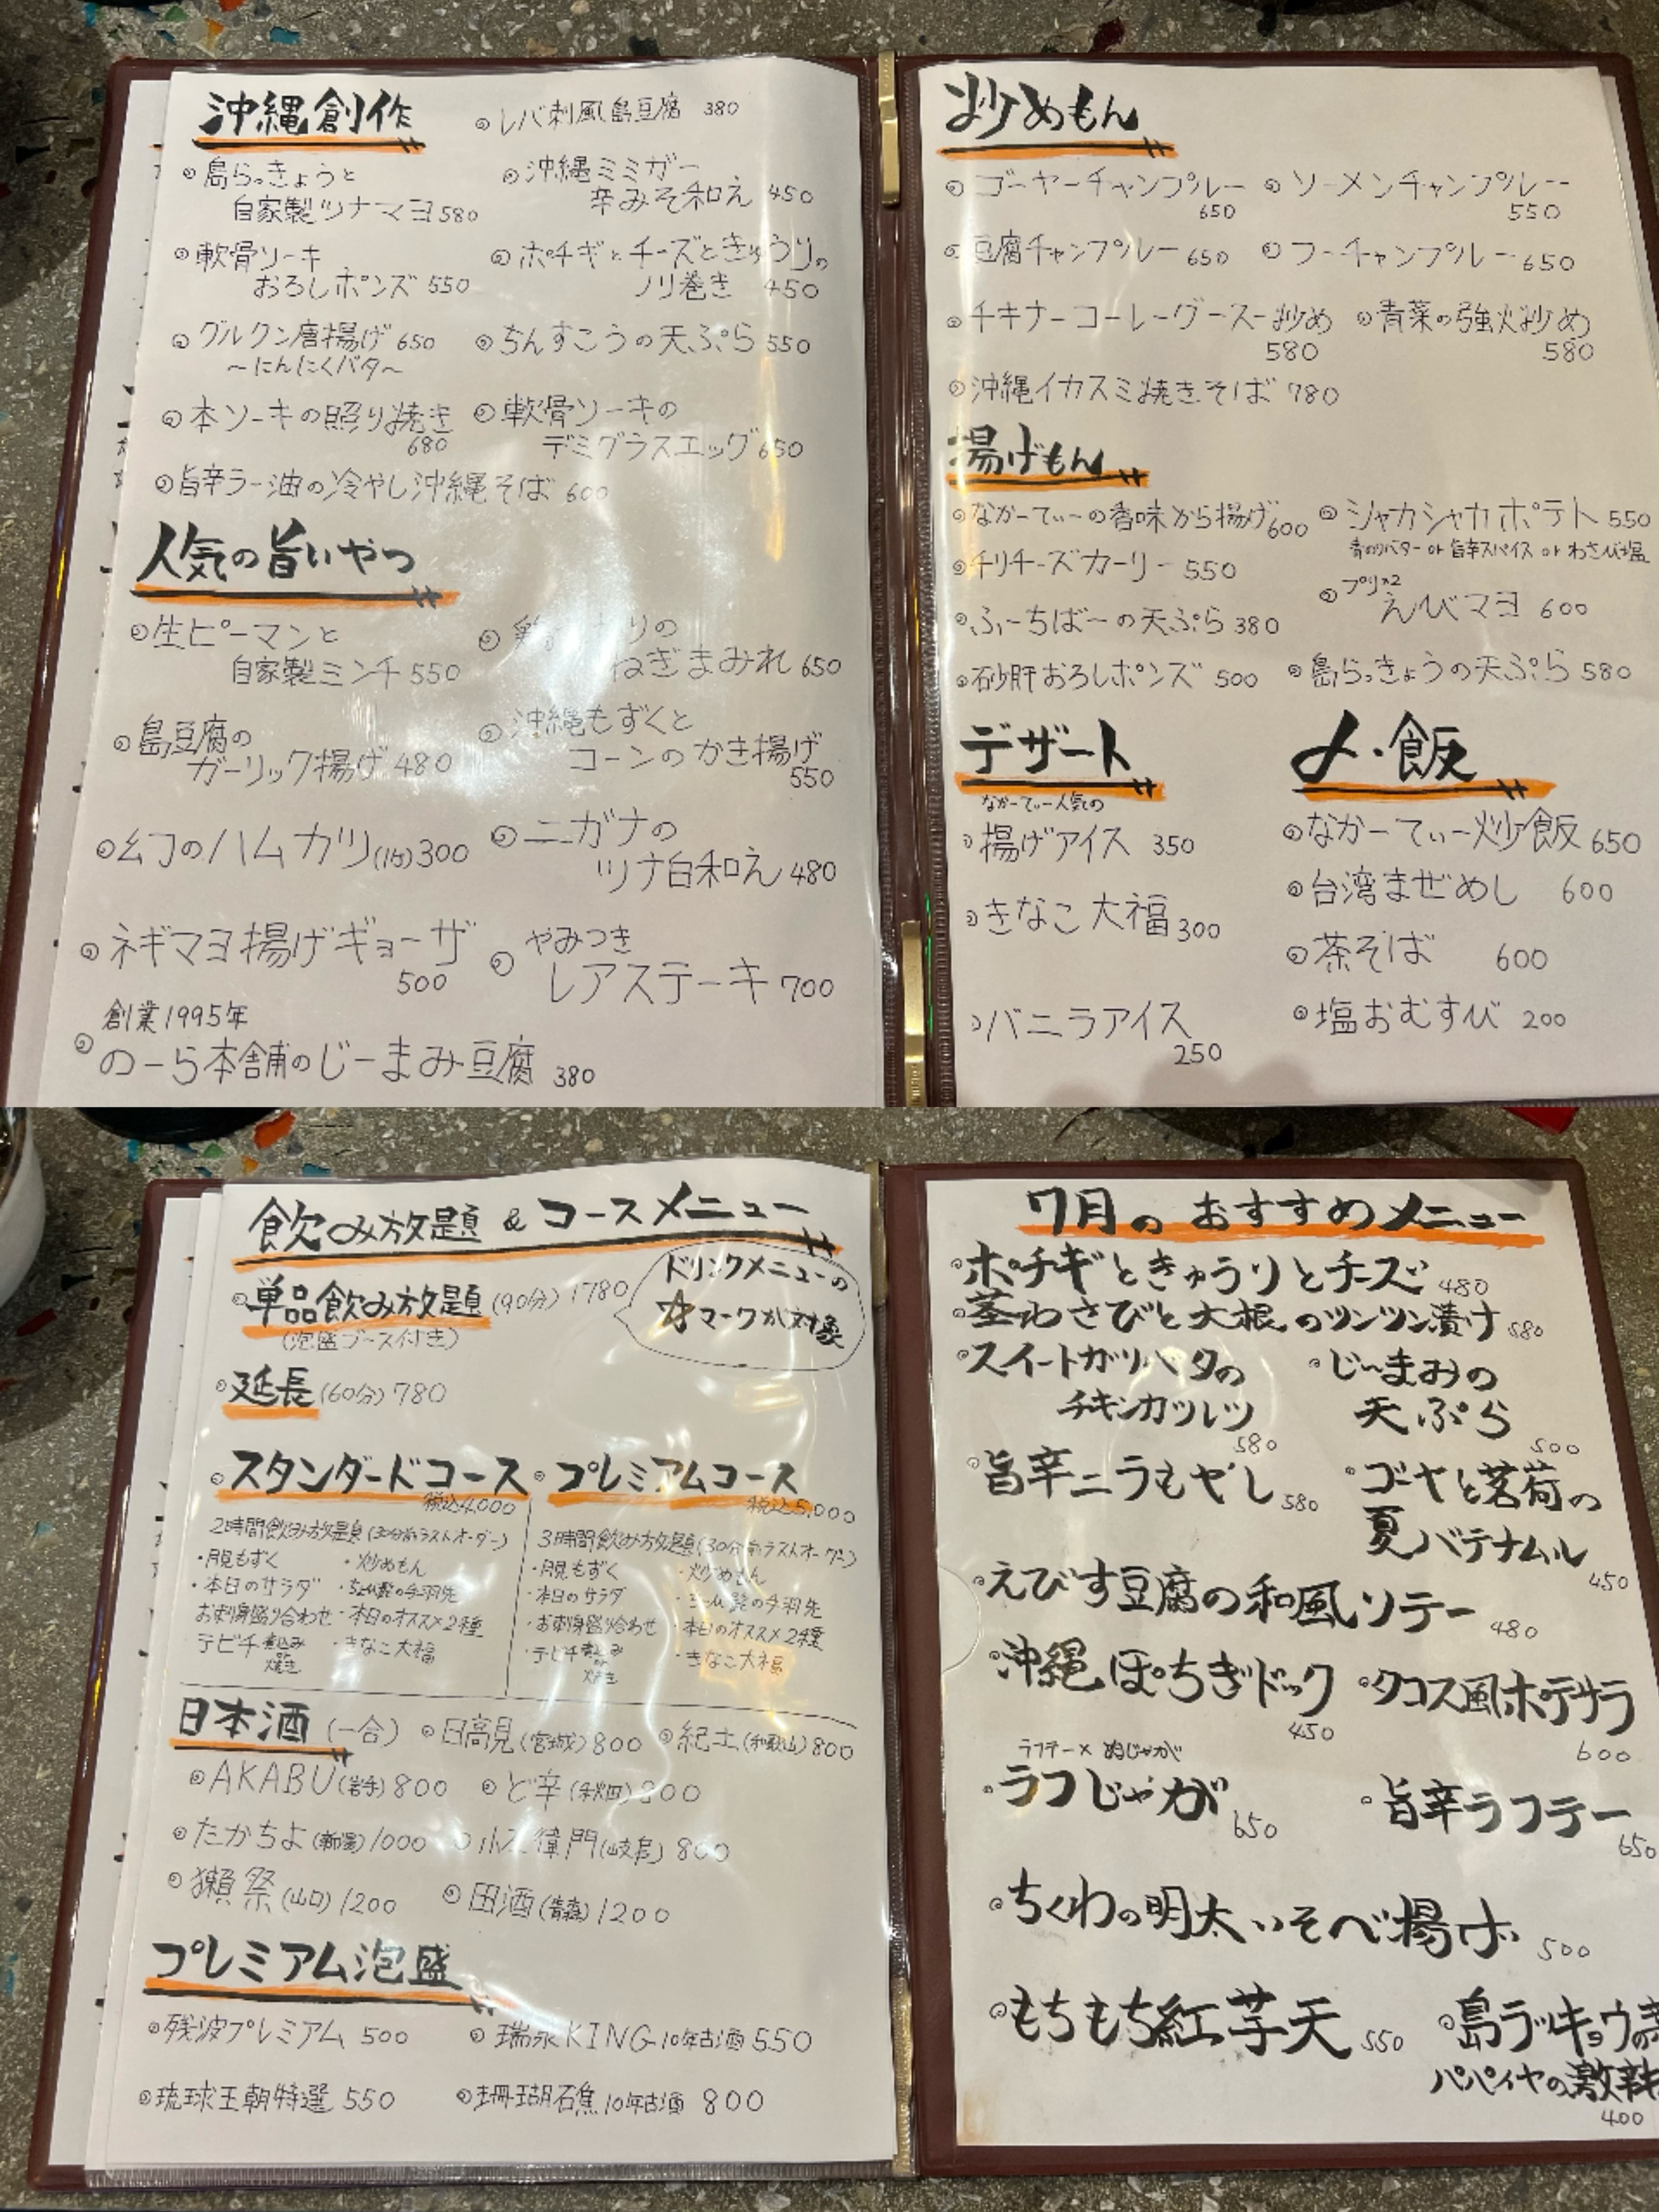 沖縄創作
レバ刺風島豆腐 380
島らっきょうと
自家製ツナマヨ580
沖縄ミミガー
辛みそ和え 450
軟骨ソーキ
おろしポンズ 550
ポチギとチーズときゅうりの
ノリ巻き 450
グルクン唐揚げ 650
〜にんにくバタ〜
ちんすこうの天ぷら 550
本ソーキの照り焼き
680
軟骨ソーキの
デミグラスエッグ 650
旨辛ラー油の冷やし沖縄そば 600
人気の旨いやつ
生ピーマンと
自家製ミンチ 550
りの
ねぎまみれ 650
島豆腐の
ガーリック揚げ 480
沖縄もずくと
コーンのかき揚げ
550
幻のハムカツ(1枚)300
ニガナの
ツナ白和え 480
ネギマヨ揚げギョーザ
500
やみつき
レアステーキ 700
創業1995年
のーら本舗のじーまみ豆腐 380
炒めもん
ゴーヤーチャンプルー
650
ソーメンチャンプルー
550
豆腐チャンプルー 650
フーチャンプルー 650
チキナーコーレーグースー炒め
580
青菜の強火炒め
580
沖縄イカスミ焼きそば 780
揚げもん
なかーてぃーの香味から揚げ600
シャカシャカポテト 550
青のりバター or 旨辛スパイス or わさび塩
チリチーズカーリー 550
プリ×2
えびマヨ 600
ふーちばーの天ぷら 380
砂肝おろしポンズ 500
島らっきょうの天ぷら 580
デザート
なかーてぃー人気の
揚げアイス 350
きなこ大福 300
バニラアイス
250
〆・飯
なかーてぃー炒飯 650
台湾まぜめし 600
茶そば 600
塩おむすび 200
飲み放題 & コースメニュー
単品飲み放題(90分) 1780
(泡盛ブース付き)
ドリンクメニューの
☆マークが対象
延長(60分) 780
スタンダードコース
税込4,000
2時間飲み放題(30分前ラストオーダー)
・月見もずく
・炒めもん
・本日のサラダ
の手羽先
お刺身盛り合わせ
・本日のオススメ2種
テビチ煮込み
焼き
・きなこ大福
プレミアムコース
税込5,000
3時間飲み放題(30分前ラストオーダー)
・月見もずく
・炒めもん
・本日のサラダ
の手羽先
・お刺身盛り合わせ
・本日のオススメ2種
・テビチ煮込み
焼き
・きなこ大福
日本酒(一合)
日高見(宮城) 800
紀土(和歌山) 800
AKABU(岩手) 800
ど辛(秋田) 800
たかちよ(新潟) 1000
小左衛門(岐阜) 800
獺祭(山口) 1200
田酒(青森) 1200
プレミアム泡盛
残波プレミアム 500
瑞泉KING 10年古酒 550
琉球王朝特選 550
珊瑚石焦 10年古酒 800
7月のおすすめメニュー
ポチギときゅうりとチーズ 480
茎わさびと大根のツンツン漬け 580
スイートガリバタの
チキンカツレツ
580
じーまみの
天ぷら
500
旨辛ニラもやし 580
ゴーヤと茗荷の
夏バテナムル
450
えびす豆腐の和風ソテー 480
沖縄ぽちぎドック
450
タコス風ポテサラ
600
ラフテー×肉じゃが
ラフじゃが 650
旨辛ラフテー
650
ちくわの明太いそべ揚げ 500
もちもち紅芋天 550
島ラッキョウの
パパイヤの激辛
400